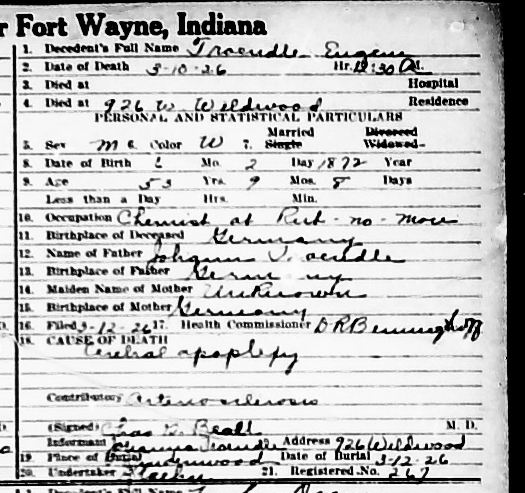 r Fort Wayne, Indiana
1. Decedent's Full Name Traendle Eugene
2. Date of Death 3-10-26 Hr. 12:30 A M.
3. Died at Hospital
4. Died at 926 W Wildwood Residence
PERSONAL AND STATISTICAL PARTICULARS
Married Divorced
5. Sex M 6. Color W 7. Single Widowed
8. Date of Birth Mo. 2 Day 1872 Year
9. Age 53 Yrs. 9 Mos. 8 Days
Less than a Day Hrs. Min.
10. Occupation Chemist at Rub-no-more
11. Birthplace of Deceased Germany
12. Name of Father Johann Traendle
13. Birthplace of Father Germany
14. Maiden Name of Mother Unknown
15. Birthplace of Mother Germany
16. Filed 3-12-26 17. Health Commissioner D R Benninghoff
18. CAUSE OF DEATH
Cerebral apoplexy
Contributory Arterio sclerosis
(Signed) Chas Beall M. D.
Informant Traendle Address 926 Wildwood
19. Place of Burial Lindenwood Date of Burial 3-12-26
20. Undertaker 21. Registered No. 267
1. Decedent's Full Name